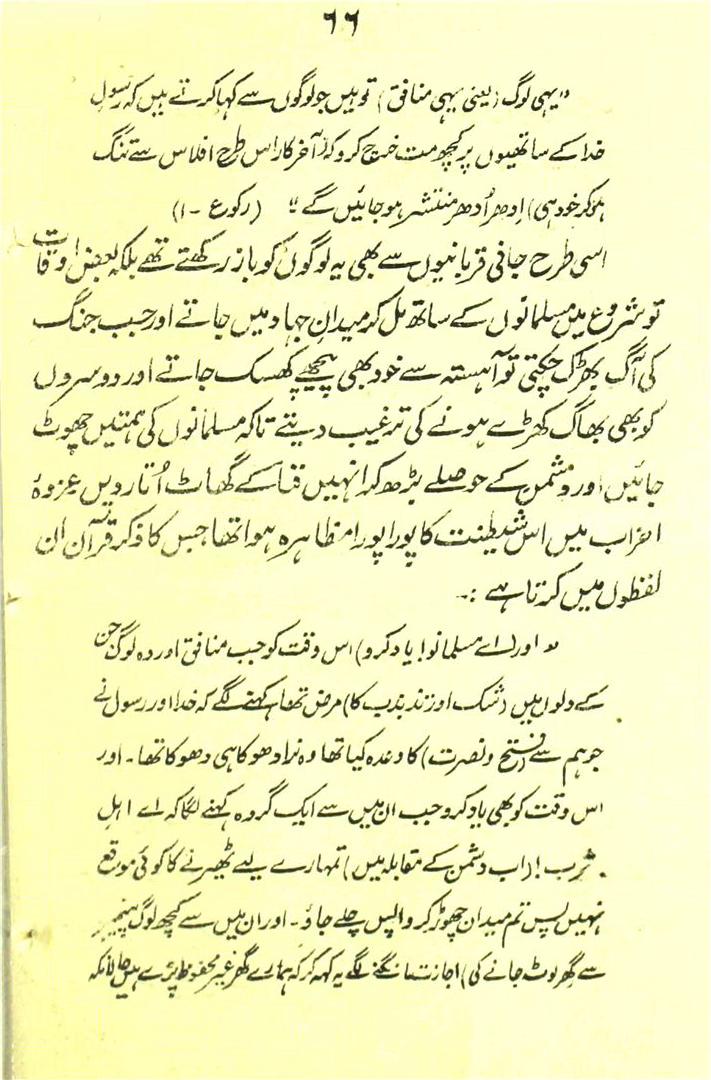 ۶۶
"یہی لوگ (یعنی یہی منافق) تو ہیں جو لوگوں سے کہا کرتے ہیں کہ رسولِ
خدا کے ساتھیوں پر کچھ مت خرچ کرو کہ (آخر کار اس طرح افلاس سے تنگ
ہو کر خود ہی) اِدھر اُدھر منتشر ہو جائیں گے" (رکوع - ۱)
اسی طرح جانی قربانیوں سے بھی یہ لوگوں کو باز رکھتے تھے بلکہ بعض اوقات
تو شروع میں مسلمانوں کے ساتھ مل کر میدانِ جہاد میں جاتے اور جب جنگ
کی آگ بھڑک چکتی تو آہستہ سے خود بھی پیچھے کھسک جاتے اور دوسروں
کو بھی بھاگ کھڑے ہونے کی ترغیب دیتے تاکہ مسلمانوں کی ہمتیں چھوٹ
جائیں اور دشمن کے حوصلے بڑھ کر انہیں فنا کے گھاٹ اُتار دیں غزوۂ
احزاب میں اس شیطنت کا پورا پورا مظاہرہ ہوا تھا جس کا ذکر قرآن ان
لفظوں میں کرتا ہے :۔
"اور (اے مسلمانو! یاد کرو) اس وقت کو جب منافق اور وہ لوگ جن
کے دلوں میں (شک اور تذبذب کا) مرض تھا، کہنے لگے کہ خدا اور رسول نے
جو ہم سے (فتح و نصرت) کا وعدہ کیا تھا وہ نرا دھوکا ہی دھوکا تھا۔ اور
اس وقت کو بھی یاد کرو جب ان میں سے ایک گروہ کہنے لگا کہ اے اہلِ
یثرب! (اب دشمن کے مقابلہ میں) تمہارے لیے ٹھیرنے کا کوئی موقع
نہیں پس تم میدان چھوڑ کر واپس چلے جاؤ۔ اور ان میں سے کچھ لوگ پیغمبر
سے گھر لوٹ جانے کی) اجازت مانگنے لگے یہ کہہ کر کہ ہمارے گھر غیر محفوظ پڑے ہیں حالانکہ